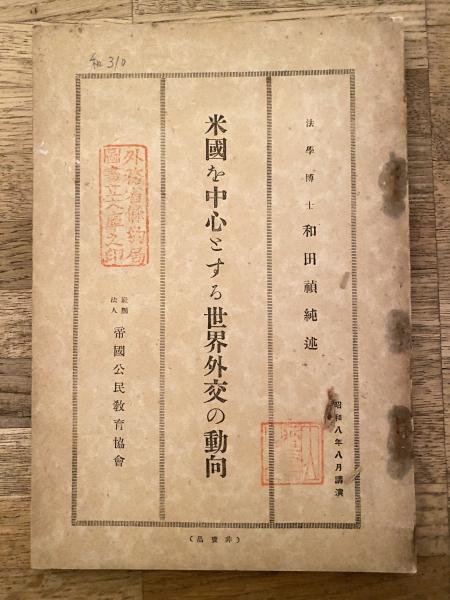 和310
昭和八年八月講演
法學博士 和田禎純述
米國を中心とする世界外交の動向
財團法人 帝國公民教育協會
外務省條約局
圖書文庫之印
(非賣品)